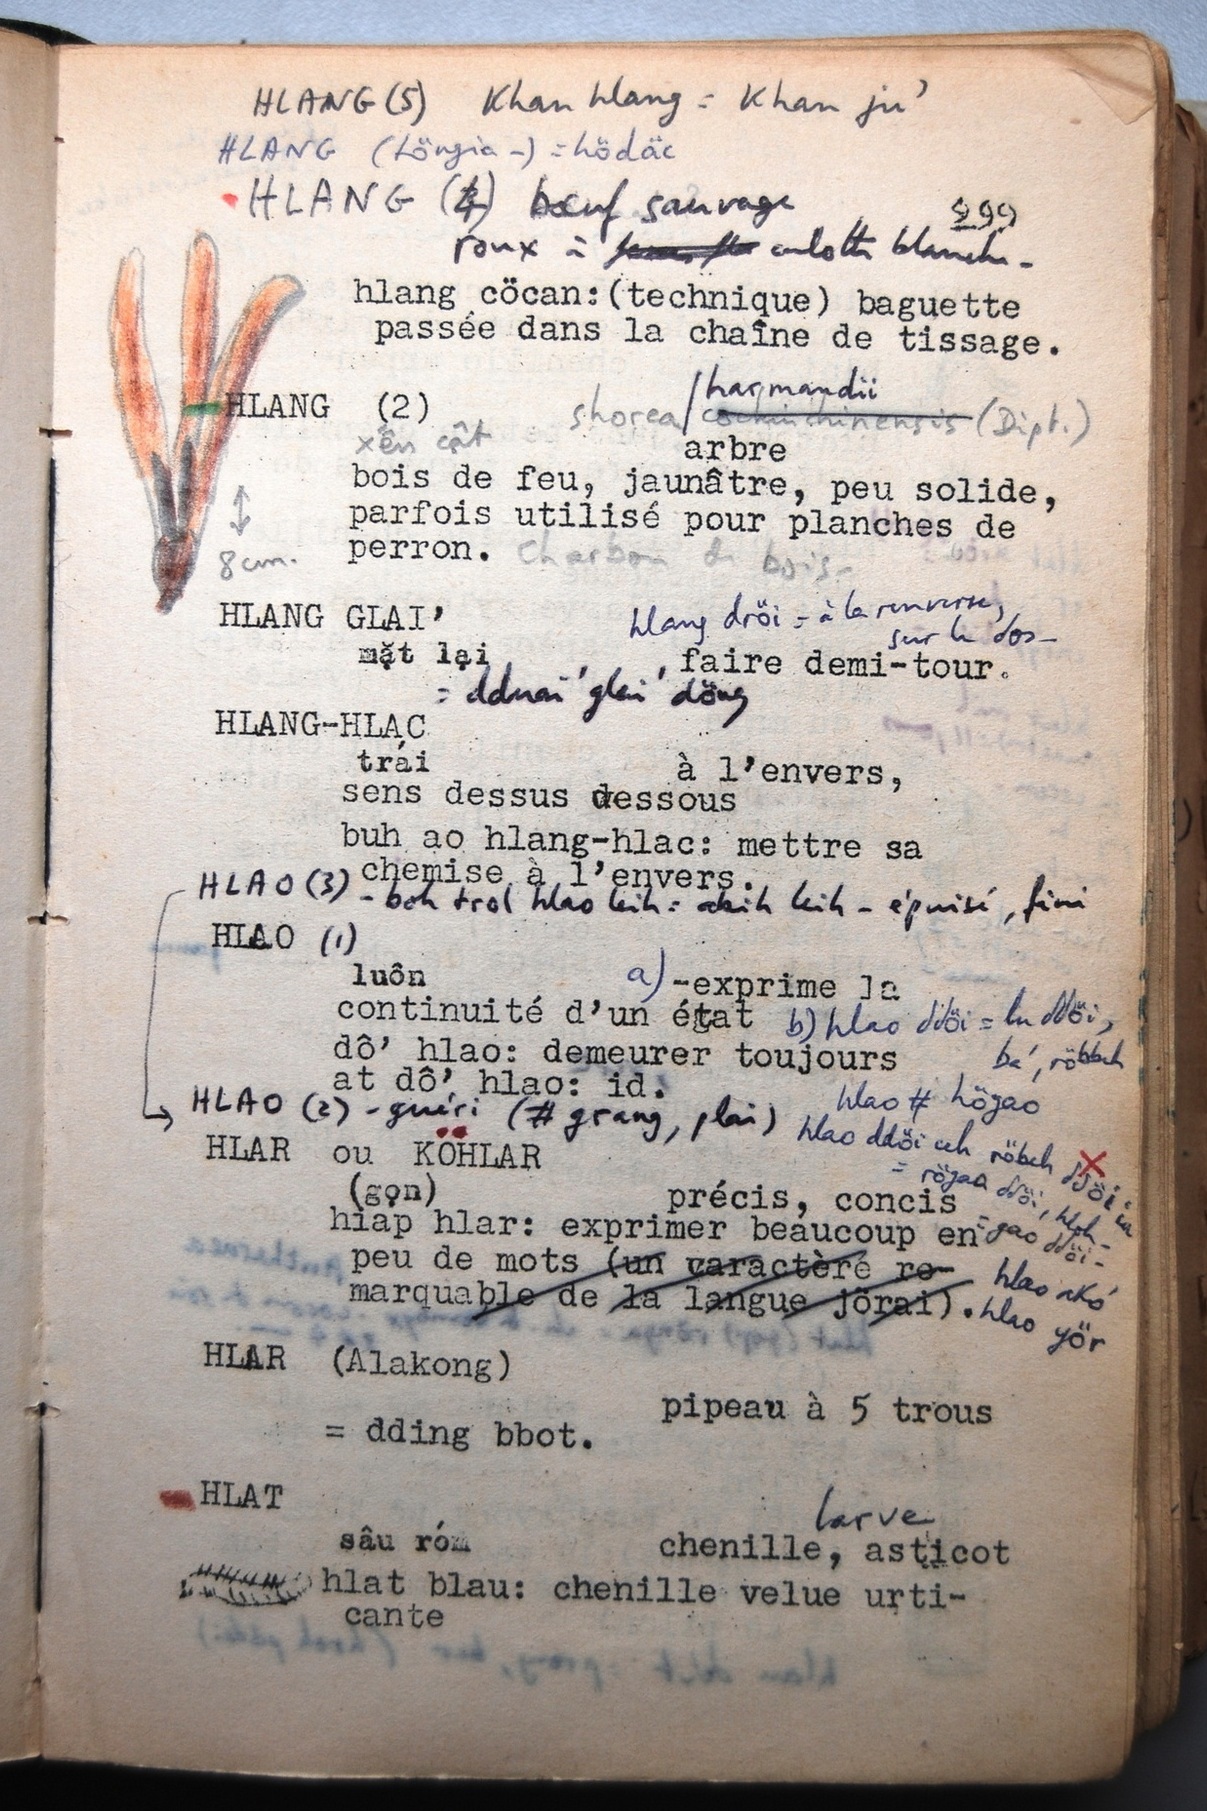 HLANG (5) Khan hlang = Khan ju'
HLANG (Löngia -) = hödăc
HLANG (4) bœuf sauvage
299
roux à culotte blanche -
hlang cöcan: (technique) baguette
passée dans la chaîne de tissage.
harmandii
HLANG (2) shorea / cochinchinensis (Dipt.)
xên cật
arbre
bois de feu, jaunâtre, peu solide,
parfois utilisé pour planches de
perron. Charbon de bois -
8 cm.
HLANG GLAI' hlang dröi = à la renverse,
sur le dos -
mặt lại faire demi-tour.
= dduai' glai' döng
HLANG-HLAC
trái à l'envers,
sens dessus dessous
buh ao hlang-hlac: mettre sa
chemise à l'envers.
HLAO (3) - boh trol hlao leih = leih - épuisé, fini
HLAO (1)
luôn a) -exprime la
continuité d'un état b) hlao ddöi = lu ddöi,
ba', röbbeh
dô' hlao: demeurer toujours
at dô' hlao: id.
HLAO (2) - guéri (# grang, plai) hlao # högao
hlao ddöi ceh röbeh ddöi
HLAR ou KÖHLAR
= rögao ddöi, hloh -
(gọn) précis, concis
= gao ddöi -
hiap hlar: exprimer beaucoup en
peu de mots (un caractère re- hlao akó
marquable de la langue jörai). hlao yör
HLAR (Alakong)
pipeau à 5 trous
= dding bbot.
HLAT
larve
sâu róm chenille, asticot
hlat blau: chenille velue urti-
cante